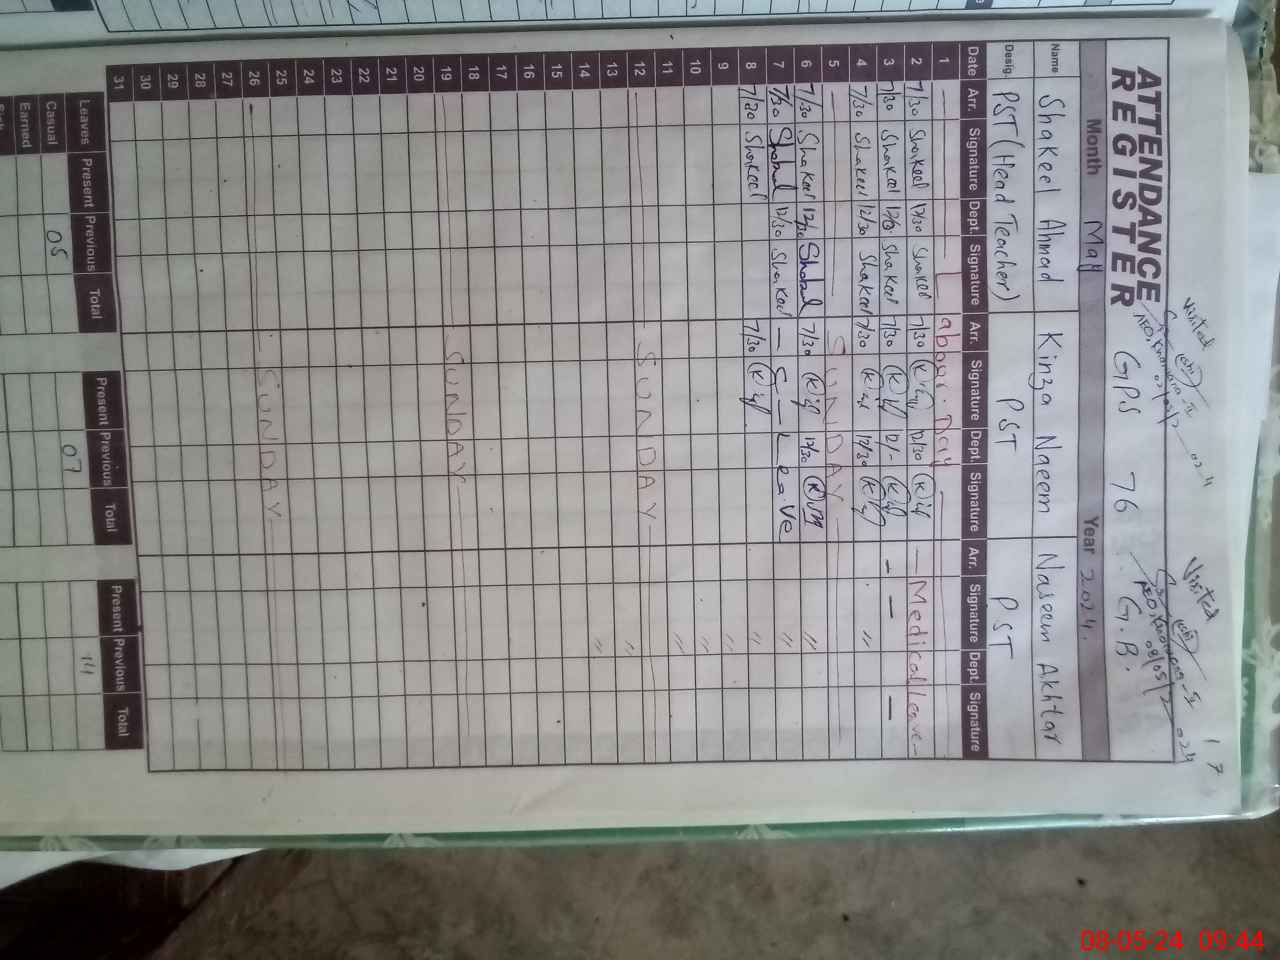 17
Visited
02/05/2024
Visited
08/05/2024
ATTENDANCE
REGISTER
GPS 76 G.B.
Month May Year 2024.
Name Shakeel Ahmad Kinza Naeem Naseem Akhtar
Desig. PST (Head Teacher) PST PST
Date Arr. Signature Dept. Signature Arr. Signature Dept. Signature Arr. Signature Dept. Signature
1 — — L abour Day —
2 7/30 Shakeel 12/30 Shakeel 7/30 12/30 — Medical Leave —
3 7/30 Shakeel Shakeel 7/30 12/- — — —
4 7/30 Shakeel 12/30 Shakeel 7/30 12/30 "
5 — SUNDAY —
6 7/30 Shakeel 12/30 7/30 12/30 "
7 7/30 12/30 Shakeel — C — Leave "
8 7/30 Shakeel 7/30 "
9 "
10 "
11 "
12 SUNDAY "
13 "
14
15
16
17
18
19 SUNDAY
20
21
22
23
24
25
26 SUNDAY
27
28
29
30
31
Leaves Present Previous Total Present Previous Total Present Previous Total
Casual 05 07 14
Earned
Sick
08-05-24 09:44